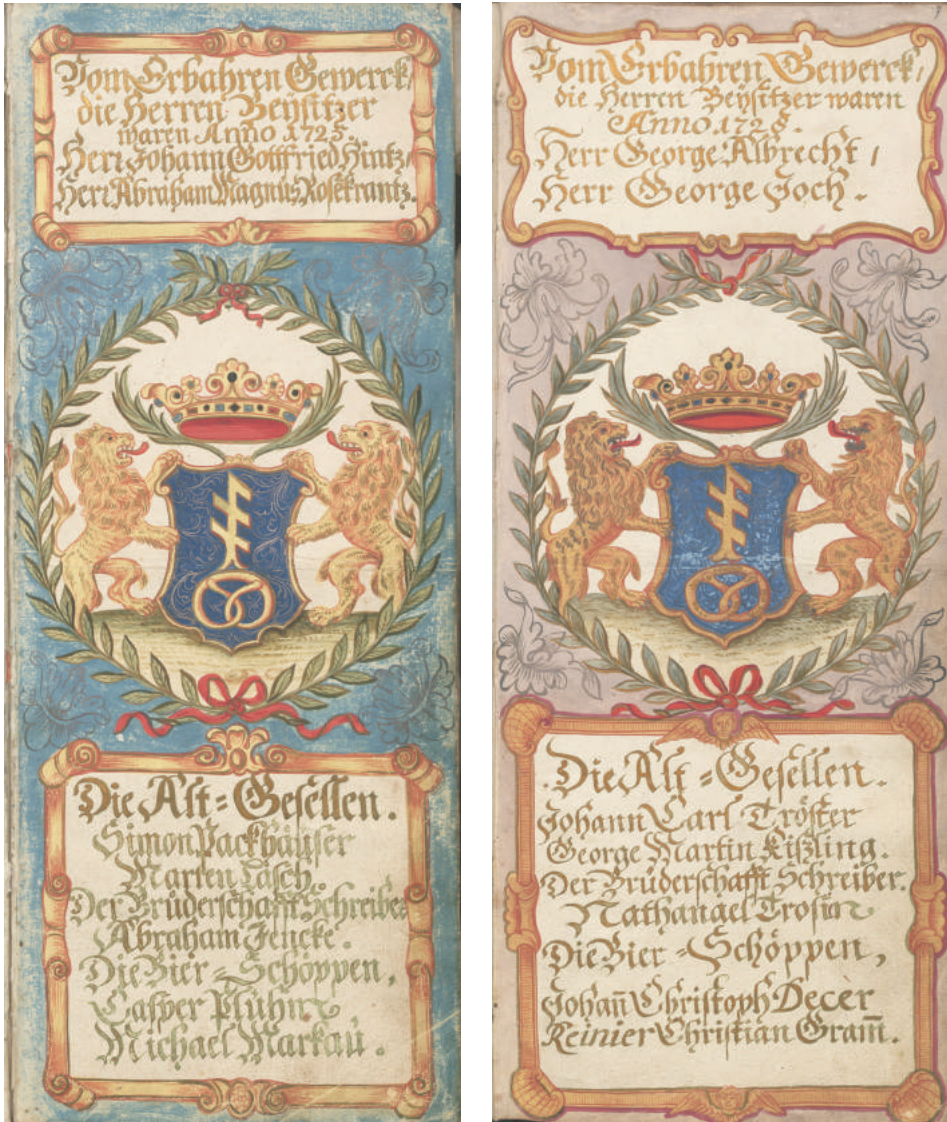 Vom Erbahren Gewerck,
die Herren Beysitzer
waren Anno 1725.
Herr Johann Gottfried Hintz,
Herr Abraham Magnus Rosekrantz.
Die Alt=Gesellen.
Simon Packhäuser
Marten Lasch.
Der Brüderschafft Schreiber
Abraham Jencke.
Die Bier=Schöppen,
Casper Pluhn
Michael Markau.
Vom Erbahren Gewerck,
die Herren Beysitzer waren
Anno 1728.
Herr George Albrecht,
Herr George Joch.
Die Alt=Gesellen.
Johann Carl Tröster
George Martin Kißling.
Der Brüderschafft Schreiber.
Nathanael Trosin
Die Bier=Schöppen,
Johañ Christoph Decer
Reinier Christian Gram̃.